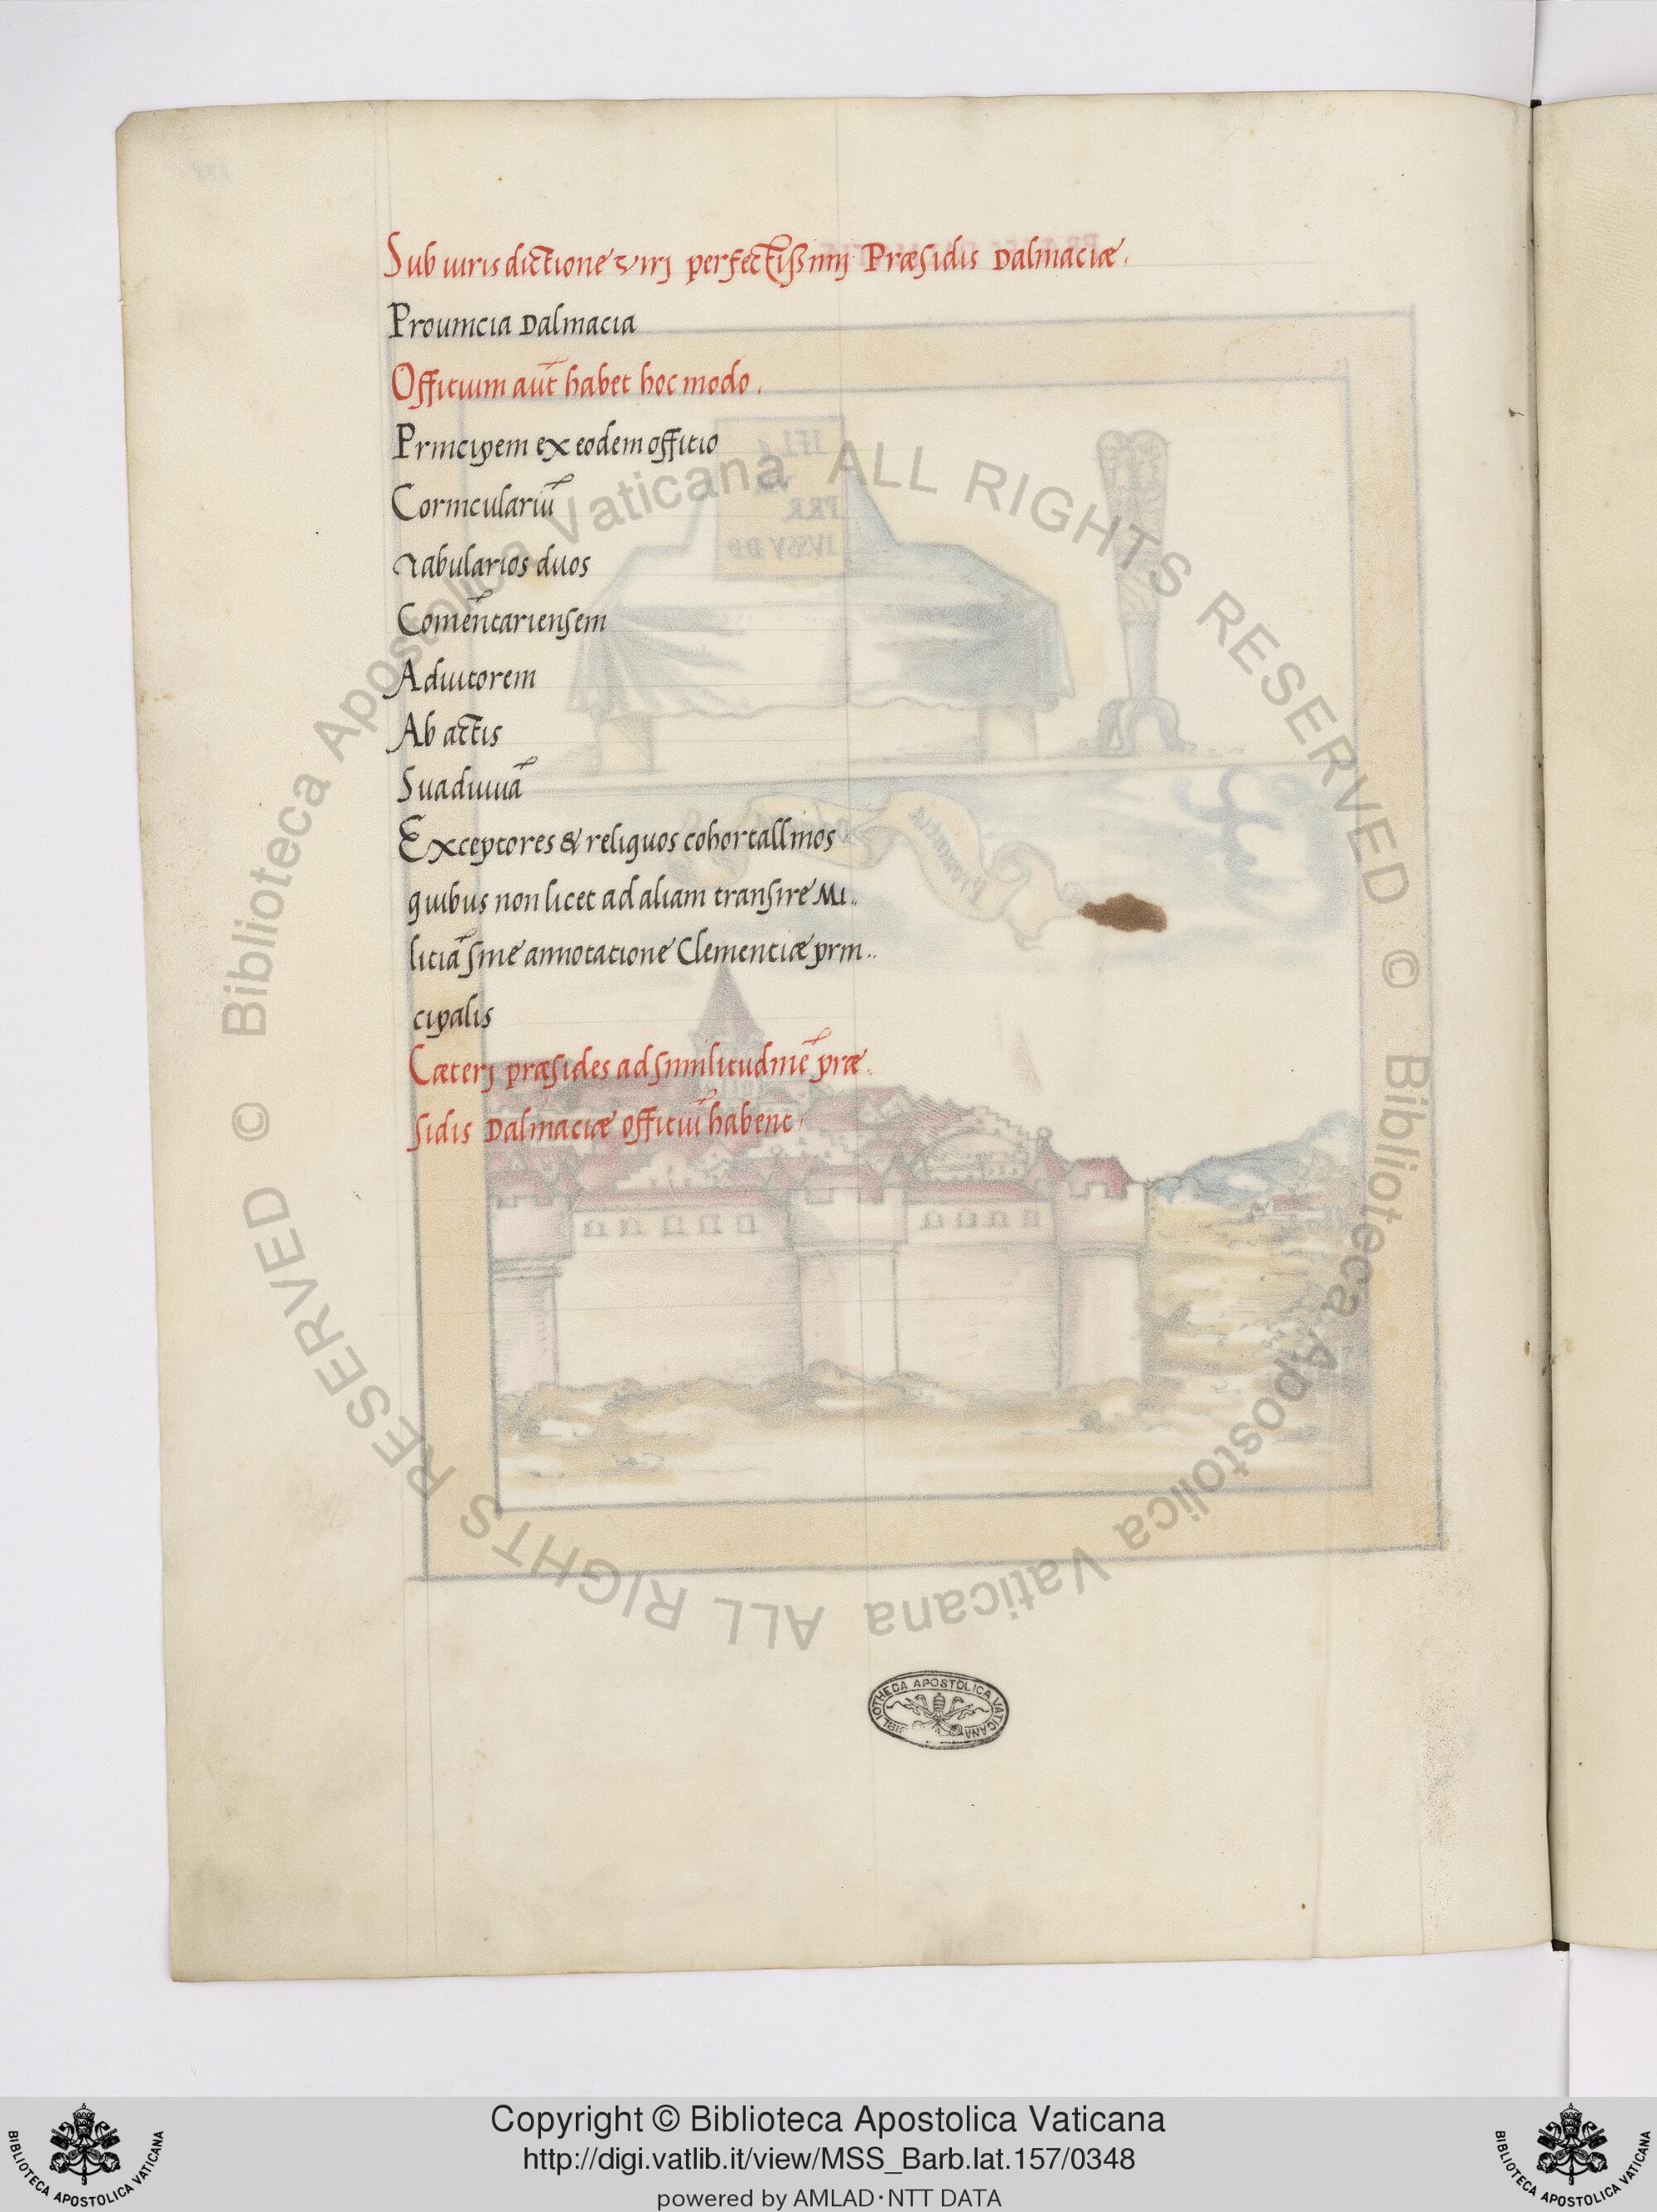 Sub iuris dictione viri perfectissimij Præsidis Dalmaciæ.
Prouincia Dalmacia
Offitium aut̄ habet hoc modo.
Principem ex eodem offitio
Corniculariū
Tabularios duos
Comēntariensem
Adiutorem
Ab actis
Subadiuuā
Exceptores & reliquos cohortallinos
quibus non licet ad aliam transire Mi..
litiā sine annotatione Clementiæ prin..
cipalis
Cæterj præsides ad similitudinē præ.
sidis Dalmaciæ offitiū habent.
© Biblioteca Apostolica Vaticana ALL RIGHTS RESERVED © Biblioteca Apostolica Vaticana ALL RIGHTS RESERVED
BIBLIOTHECA APOSTOLICA VATICANA
Copyright © Biblioteca Apostolica Vaticana
http://digi.vatlib.it/view/MSS_Barb.lat.157/0348
powered by AMLAD·NTT DATA
BIBLIOTECA APOSTOLICA VATICANA
BIBLIOTECA APOSTOLICA VATICANA